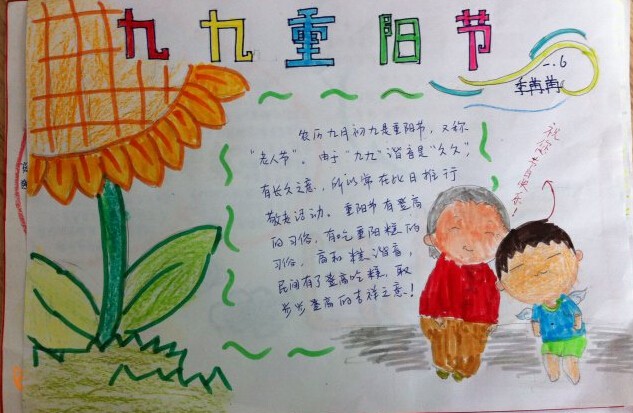 九九重阳节
一.6
农历九月初九是重阳节，又称
"老人节"。由于"九九"谐音是"久久"，
有长久之意，所以常在此日推行
敬老活动。重阳节有登高
的习俗，有吃重阳糕的
习俗，高和糕谐音，
民间有了登高吃糕，取
步步登高的吉祥之意！
祝你节日快乐！